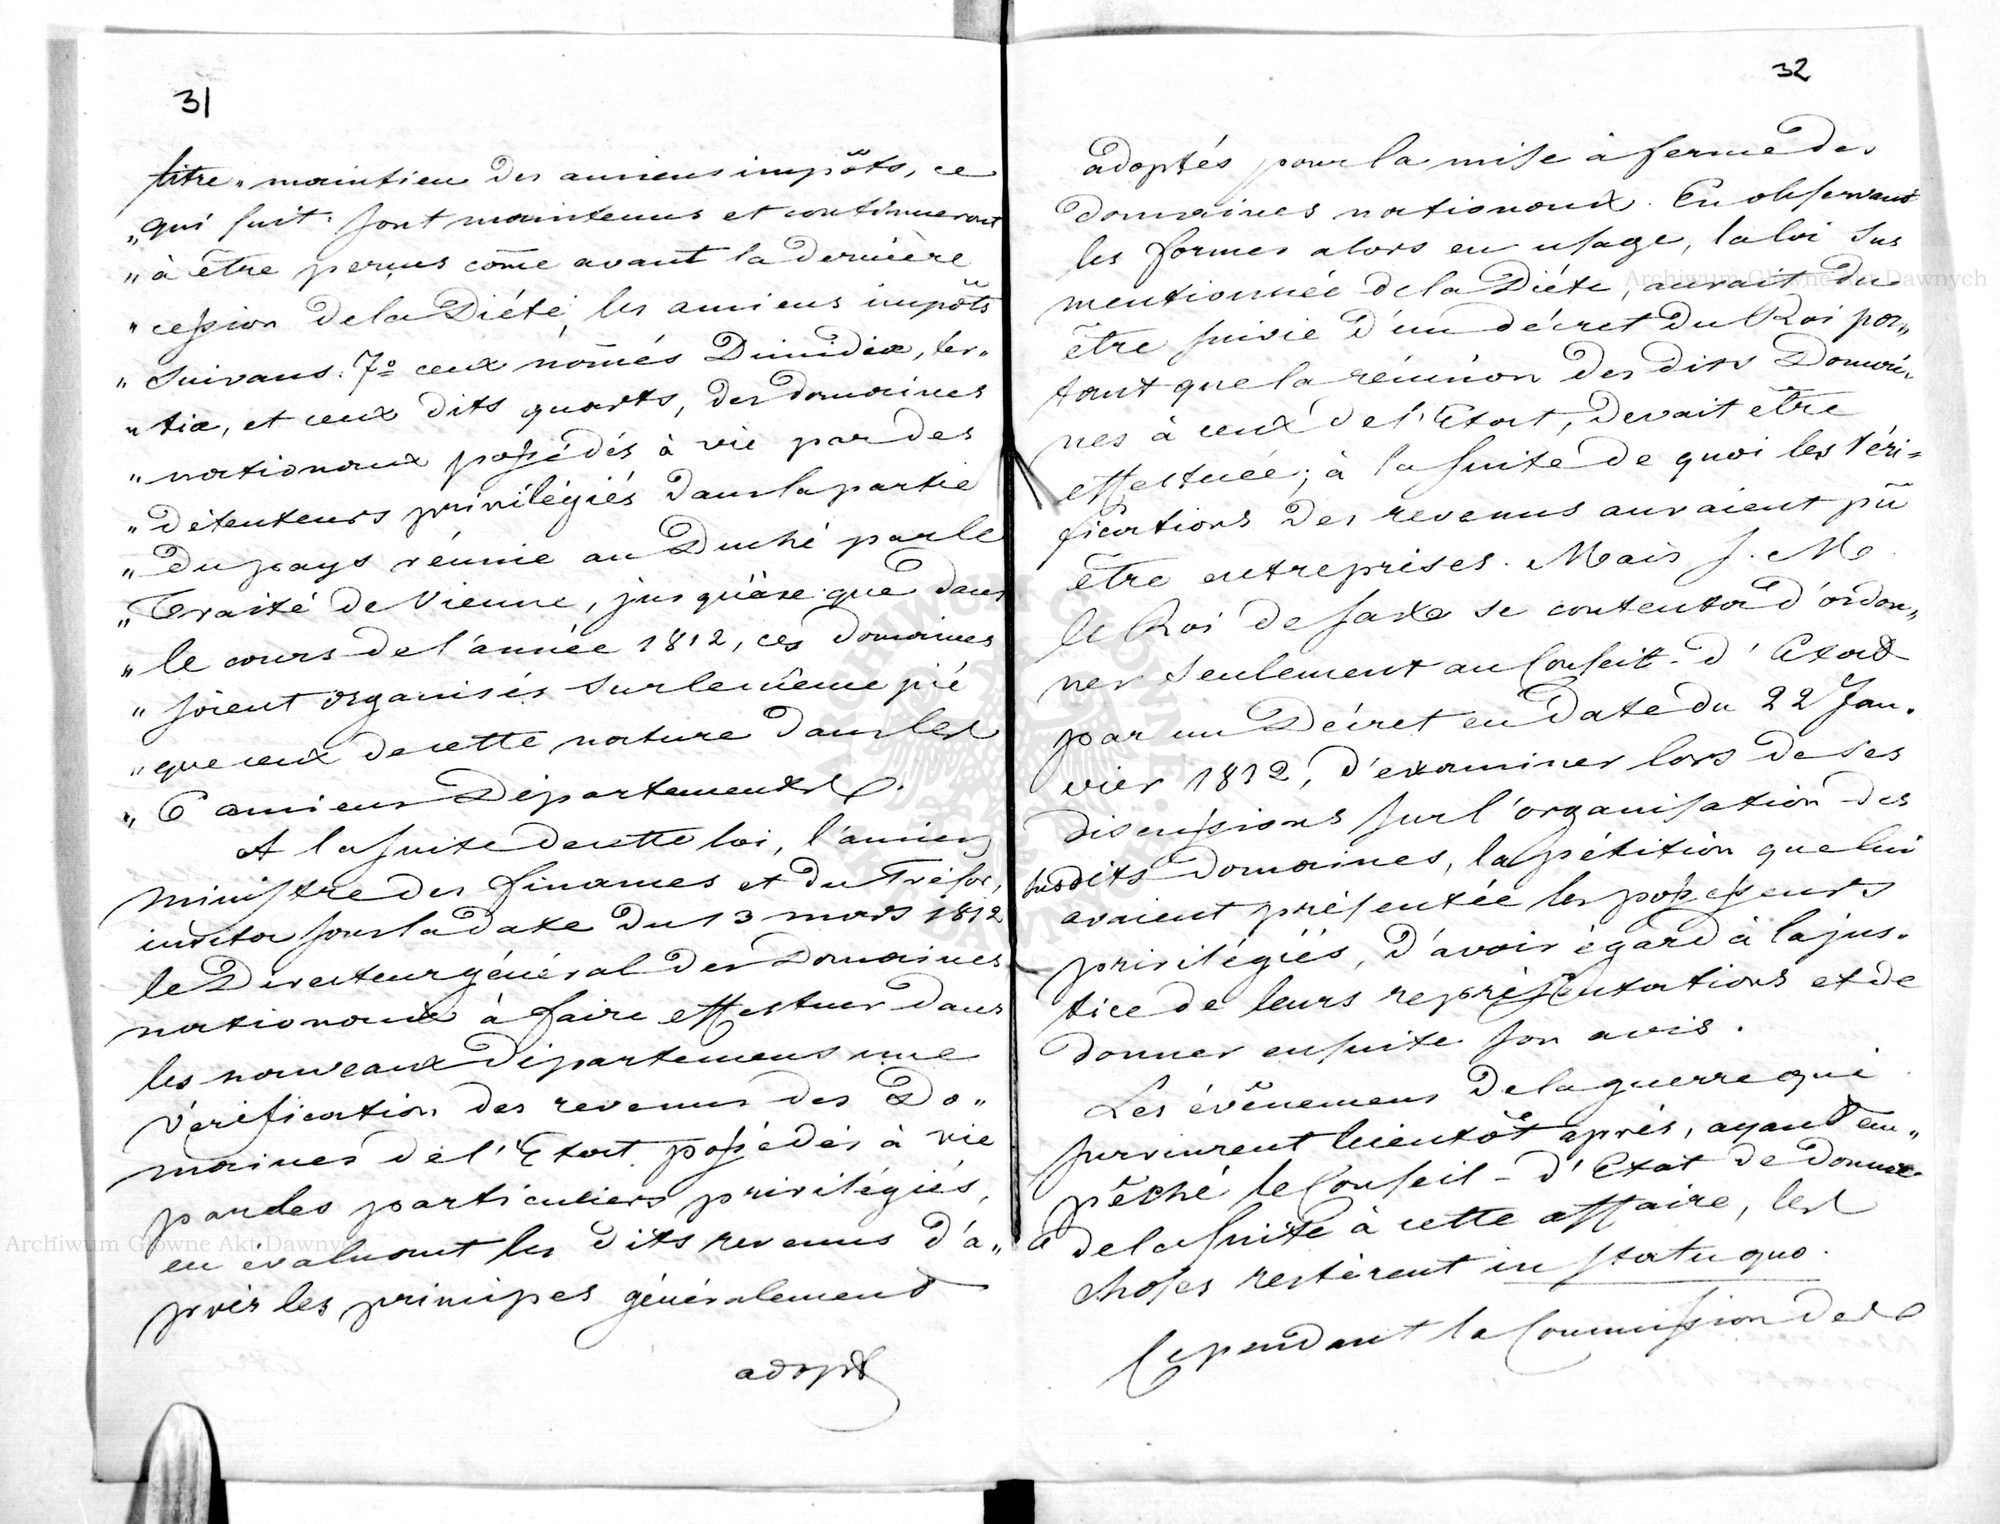 31
titre „ maintien des anciens impôts, ce
„ qui suit: sont maintenus et continueront
„ à être perçus come avant la dernière
„ cession de la Diéte, les anciens impôts
„ suivans. 7º ceux només Dimidiæ, ter„
„ tiæ, et ceux dits quarts, des domaines
„ nationaux possédés à vie par des
„ détenteurs privilégiés dans la partie
„ du pays réunie au Duché par le
„ Traité de Vienne, jusqu'à ce que dans
„ le cours de l'année 1812, ces domaines
„ soient organisés sur le même pié
„ que ceux de cette nature dans les
„ 6 anciens Départements.
A la suite de cette loi, l'ancien
ministre des finances et du Trésor,
invita sous la date du 13 mars 1812
le Directeur général des Domaines
nationaux à faire effectuer dans
les nouveaux départemens une
vérification des revenus des Do„
maines de l'Etat possédés à vie
par des particuliers privilégiés,
en évaluant les dits revenus d'a„
près les principes généralement
adopt
32
adoptés pour la mise à ferme des
domaines nationaux. En observant
les formes alors en usage, la loi sus
mentionnée de la Diéte, aurait du
être suivie d'un décret du Roi por„
tant que la réunion des dits Domai„
nes à ceux de l'Etat, devait être
effectuée; à la suite de quoi les Véri=
fications des revenus auraient pû
être entreprises. Mais S. M.
le Roi de Saxe se contenta d'ordon„
ner seulement au Conseil-d'Etat
par un Décret en date du 22 Jan.
vier 1812, d'examiner lors de ses
discussions sur l'organisation des
susdits Domaines, la pétition que lui
avaient présentée les possesseurs
privilégiés, d'avoir égard à la jus.
tice de leurs représentations et de
donner ensuite son avis.
Les évênemens de la guerre qui
survinrent bientôt après, ayant em„
pêché le Conseil-d'Etat de donner
de la suite à cette affaire, les
choses restèrent in statu quo.
Cependant la Commission des
Archiwum Główne Akt Dawnych
Archiwum Główne Akt Dawnych